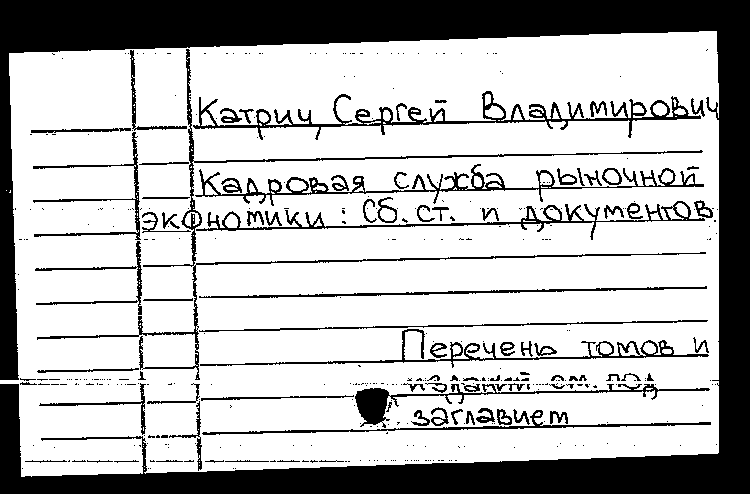 Катрич, Сергей Владимирович
Кадровая служба рыночной
экономики : Сб. ст. и документов
Перечень томов и
изданий см. под
заглавием